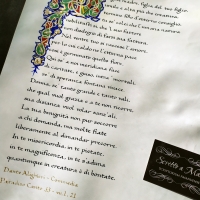 Madre, figlia del tuo figlio
alta più che creatura
fisso d'etterno consiglio
tu se' colei che l'umana natura
nobilitasti sì, che 'l suo fattore
non disdegnò di farsi sua fattura.
Nel ventre tuo si raccese l'amore
per lo cui caldo ne l'etterna pace
così è germinato questo fiore.
Qui se' a noi meridiana face
di caritate, e giuso, intra i mortali
se' di speranza fontana vivace.
Donna, se' tanto grande e tanto vali,
che qual vuol grazia e a te non
sua disianza vuol volar sanz'ali.
La tua benignità non pur soccorre
a chi domanda, ma molte fiate
liberamente al dimandar precorre.
In te misericordia, in te pietate,
in te magnificenza, in te s'aduna
quantunque in creatura è di bontate.
Dante Alighieri - Commedia
Paradiso Canto 33